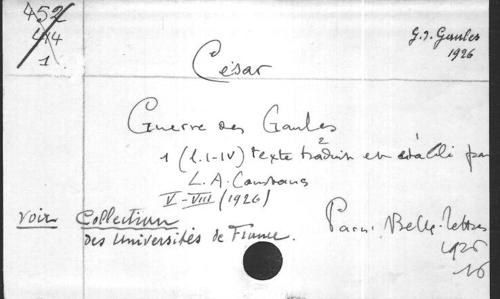 452
414
1
G. d. Gaules
1926
César
Guerre des Gaules
2
1 (l. I-IV) texte traduit et établi par
L. A. Constans
V-VIII (1926)
voir Collection
des Universités de France.
Paris. Belles-lettres
1926
16